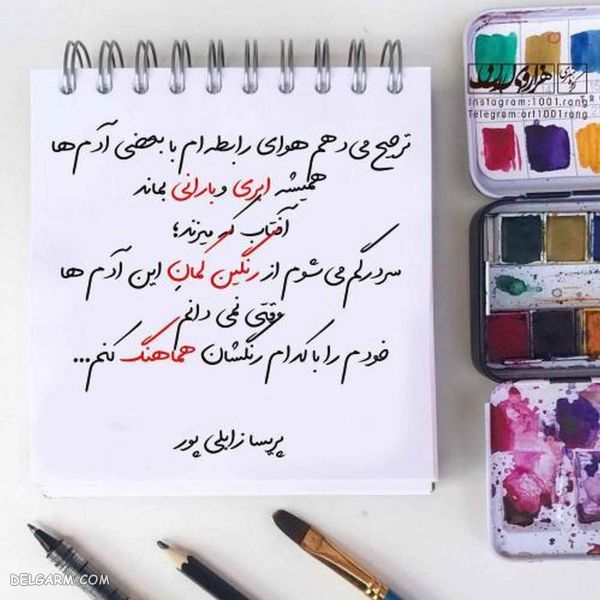 ترجیح می دهم هوای رابطه ام با بعضی آدم ها
همیشه ابری و بارانی بماند
آفتاب که میزند؛
سردرگم می شوم از رنگین کمانِ این آدم ها
وقتی نمی دانم
خودم را با کدام رنگشان هماهنگ کنم...
پریسا زابلی پور
هزار و یک رنگ
Instagram:1001.rang
Telegram:art1001rang
DELGARM.COM